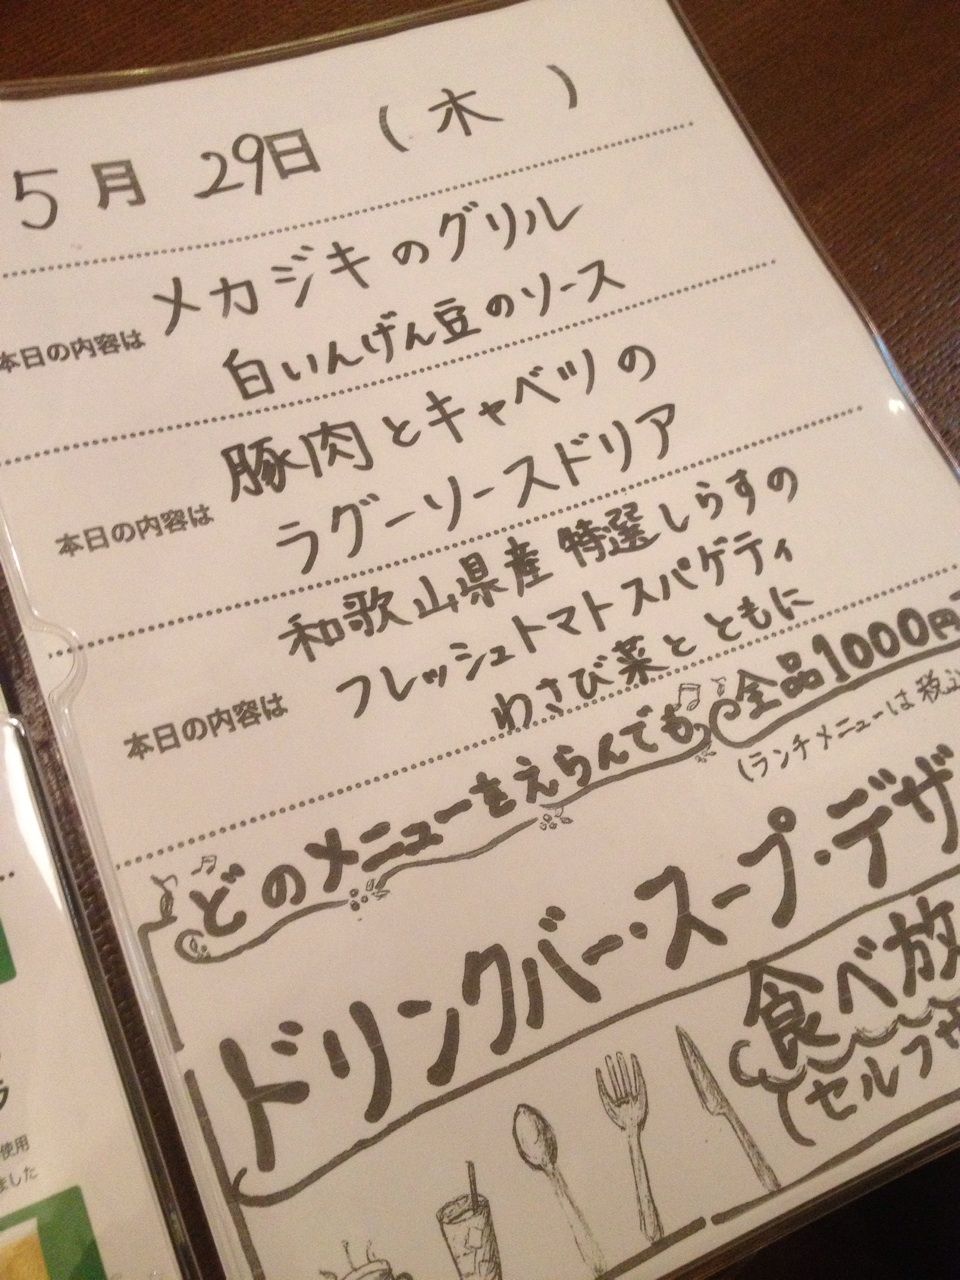 5月 29日 (木)
メカジキのグリル
本日の内容は
白いんげん豆のソース
豚肉とキャベツの
本日の内容は
ラグーソースドリア
和歌山県産 特選しらすの
フレッシュトマトスパゲティ
本日の内容は
わさび菜とともに
どのメニューをえらんでも
全品1000円
(ランチメニューは税込
ドリンクバー・スープ・デザ
食べ放
(セルフサ
使用
ました